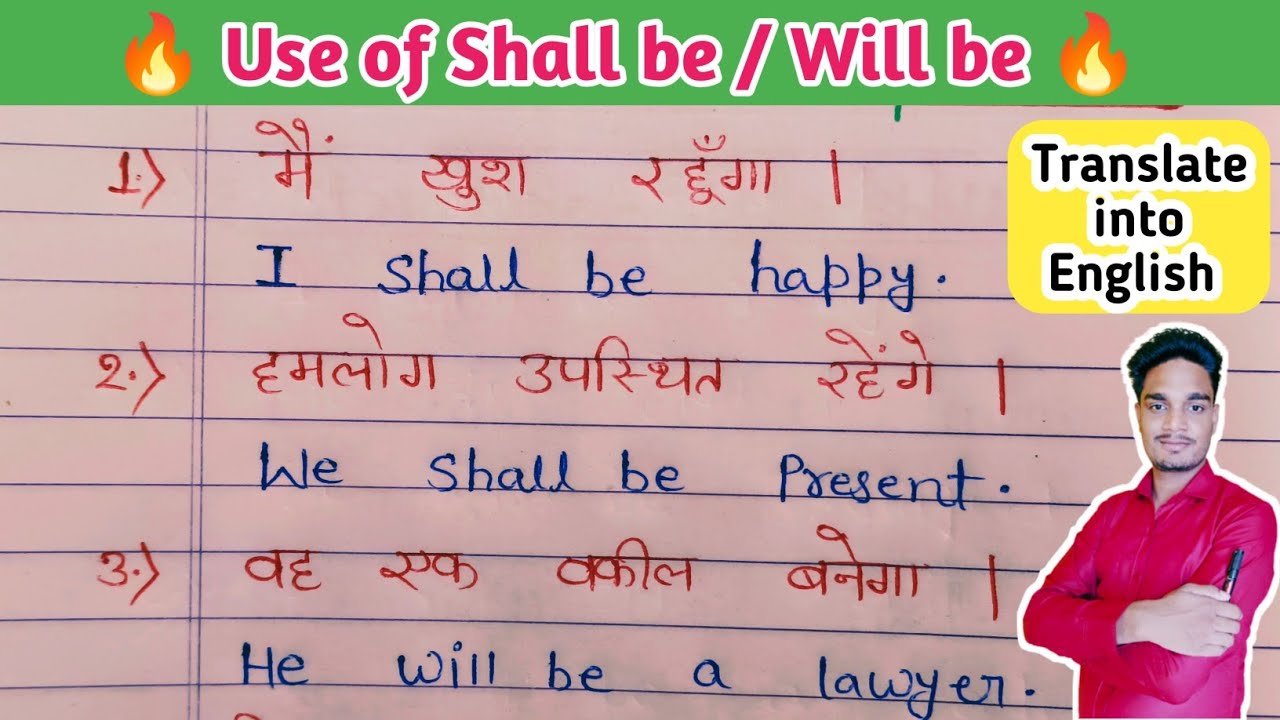 🔥 Use of Shall be / Will be 🔥
Translate
into
English
1.) मैं खुश रहूँगा |
I shall be happy.
2.) हमलोग उपस्थित रहेंगे |
We shall be Present.
3.) वह एक वकील बनेगा |
He will be a lawyer.